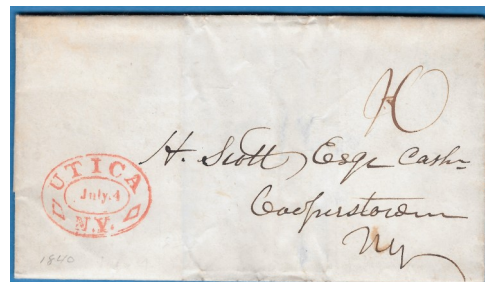 10
H. Scott Esqr Cashr
Cooperstown
Ny
UTICA
July.4
N.Y.
1840